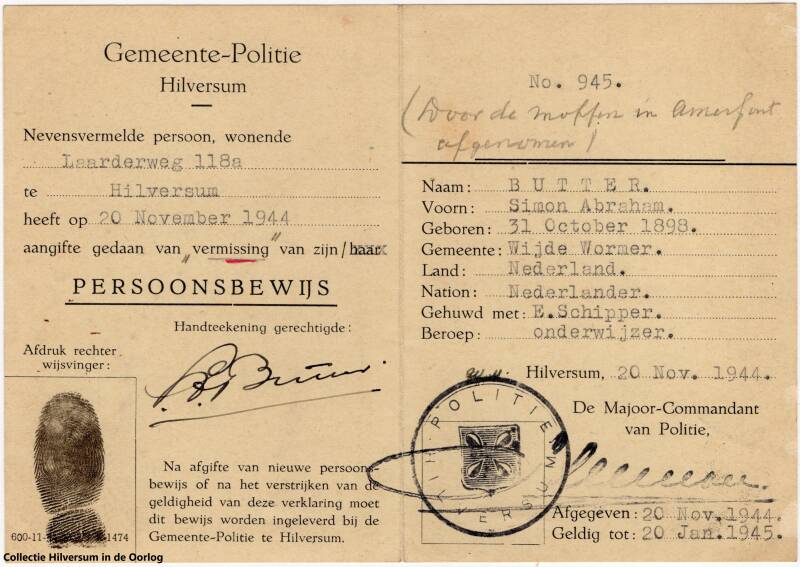 Gemeente-Politie
Hilversum
Nevensvermelde persoon, wonende
Laarderweg 118a
te Hilversum
heeft op 20 November 1944
aangifte gedaan van „vermissing" van zijn/haar
PERSOONSBEWIJS
Handteekening gerechtigde:
Afdruk rechter
wijsvinger:
Na afgifte van nieuwe persoons-
bewijs of na het verstrijken van de
geldigheid van deze verklaring moet
dit bewijs worden ingeleverd bij de
Gemeente-Politie te Hilversum.
600-11-
1474
Collectie Hilversum in de Oorlog
No. 945.
(Door de moffen in Amersfoort
afgenomen)
Naam: BUTTER.
Voorn: Simon Abraham.
Geboren: 31 October 1898.
Gemeente: Wijde Wormer.
Land: Nederland.
Nation: Nederlander.
Gehuwd met: E.Schipper.
Beroep: onderwijzer.
Hilversum, 20 Nov. 1944.
De Majoor-Commandant
van Politie,
POLITIE
HILVERSUM
Afgegeven: 20 Nov. 1944.
Geldig tot: 20 Jan. 1945.